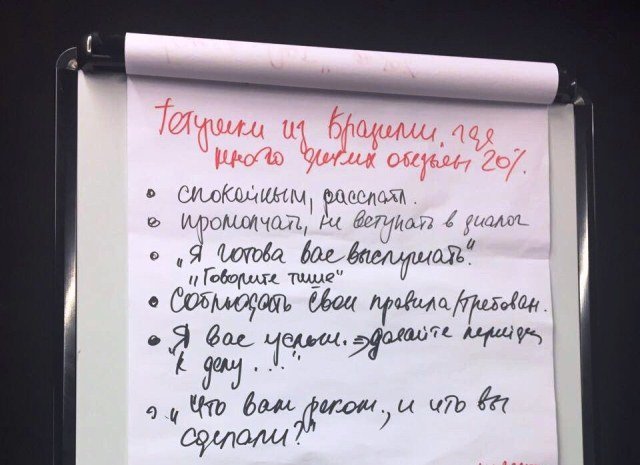 Тетушки из Бразилии, где
много диких обезьян 20%.
• спокойным, расслабл.
• промолчать, не вступать в диалог
• „Я готова вас выслушать".
„Говорите тише"
• Соблюдать свои правила/требован.
• „Я вас услыш. ⇒ давайте перейдем
к делу . . ."
• „Что вам реком., и что вы
сделали?"